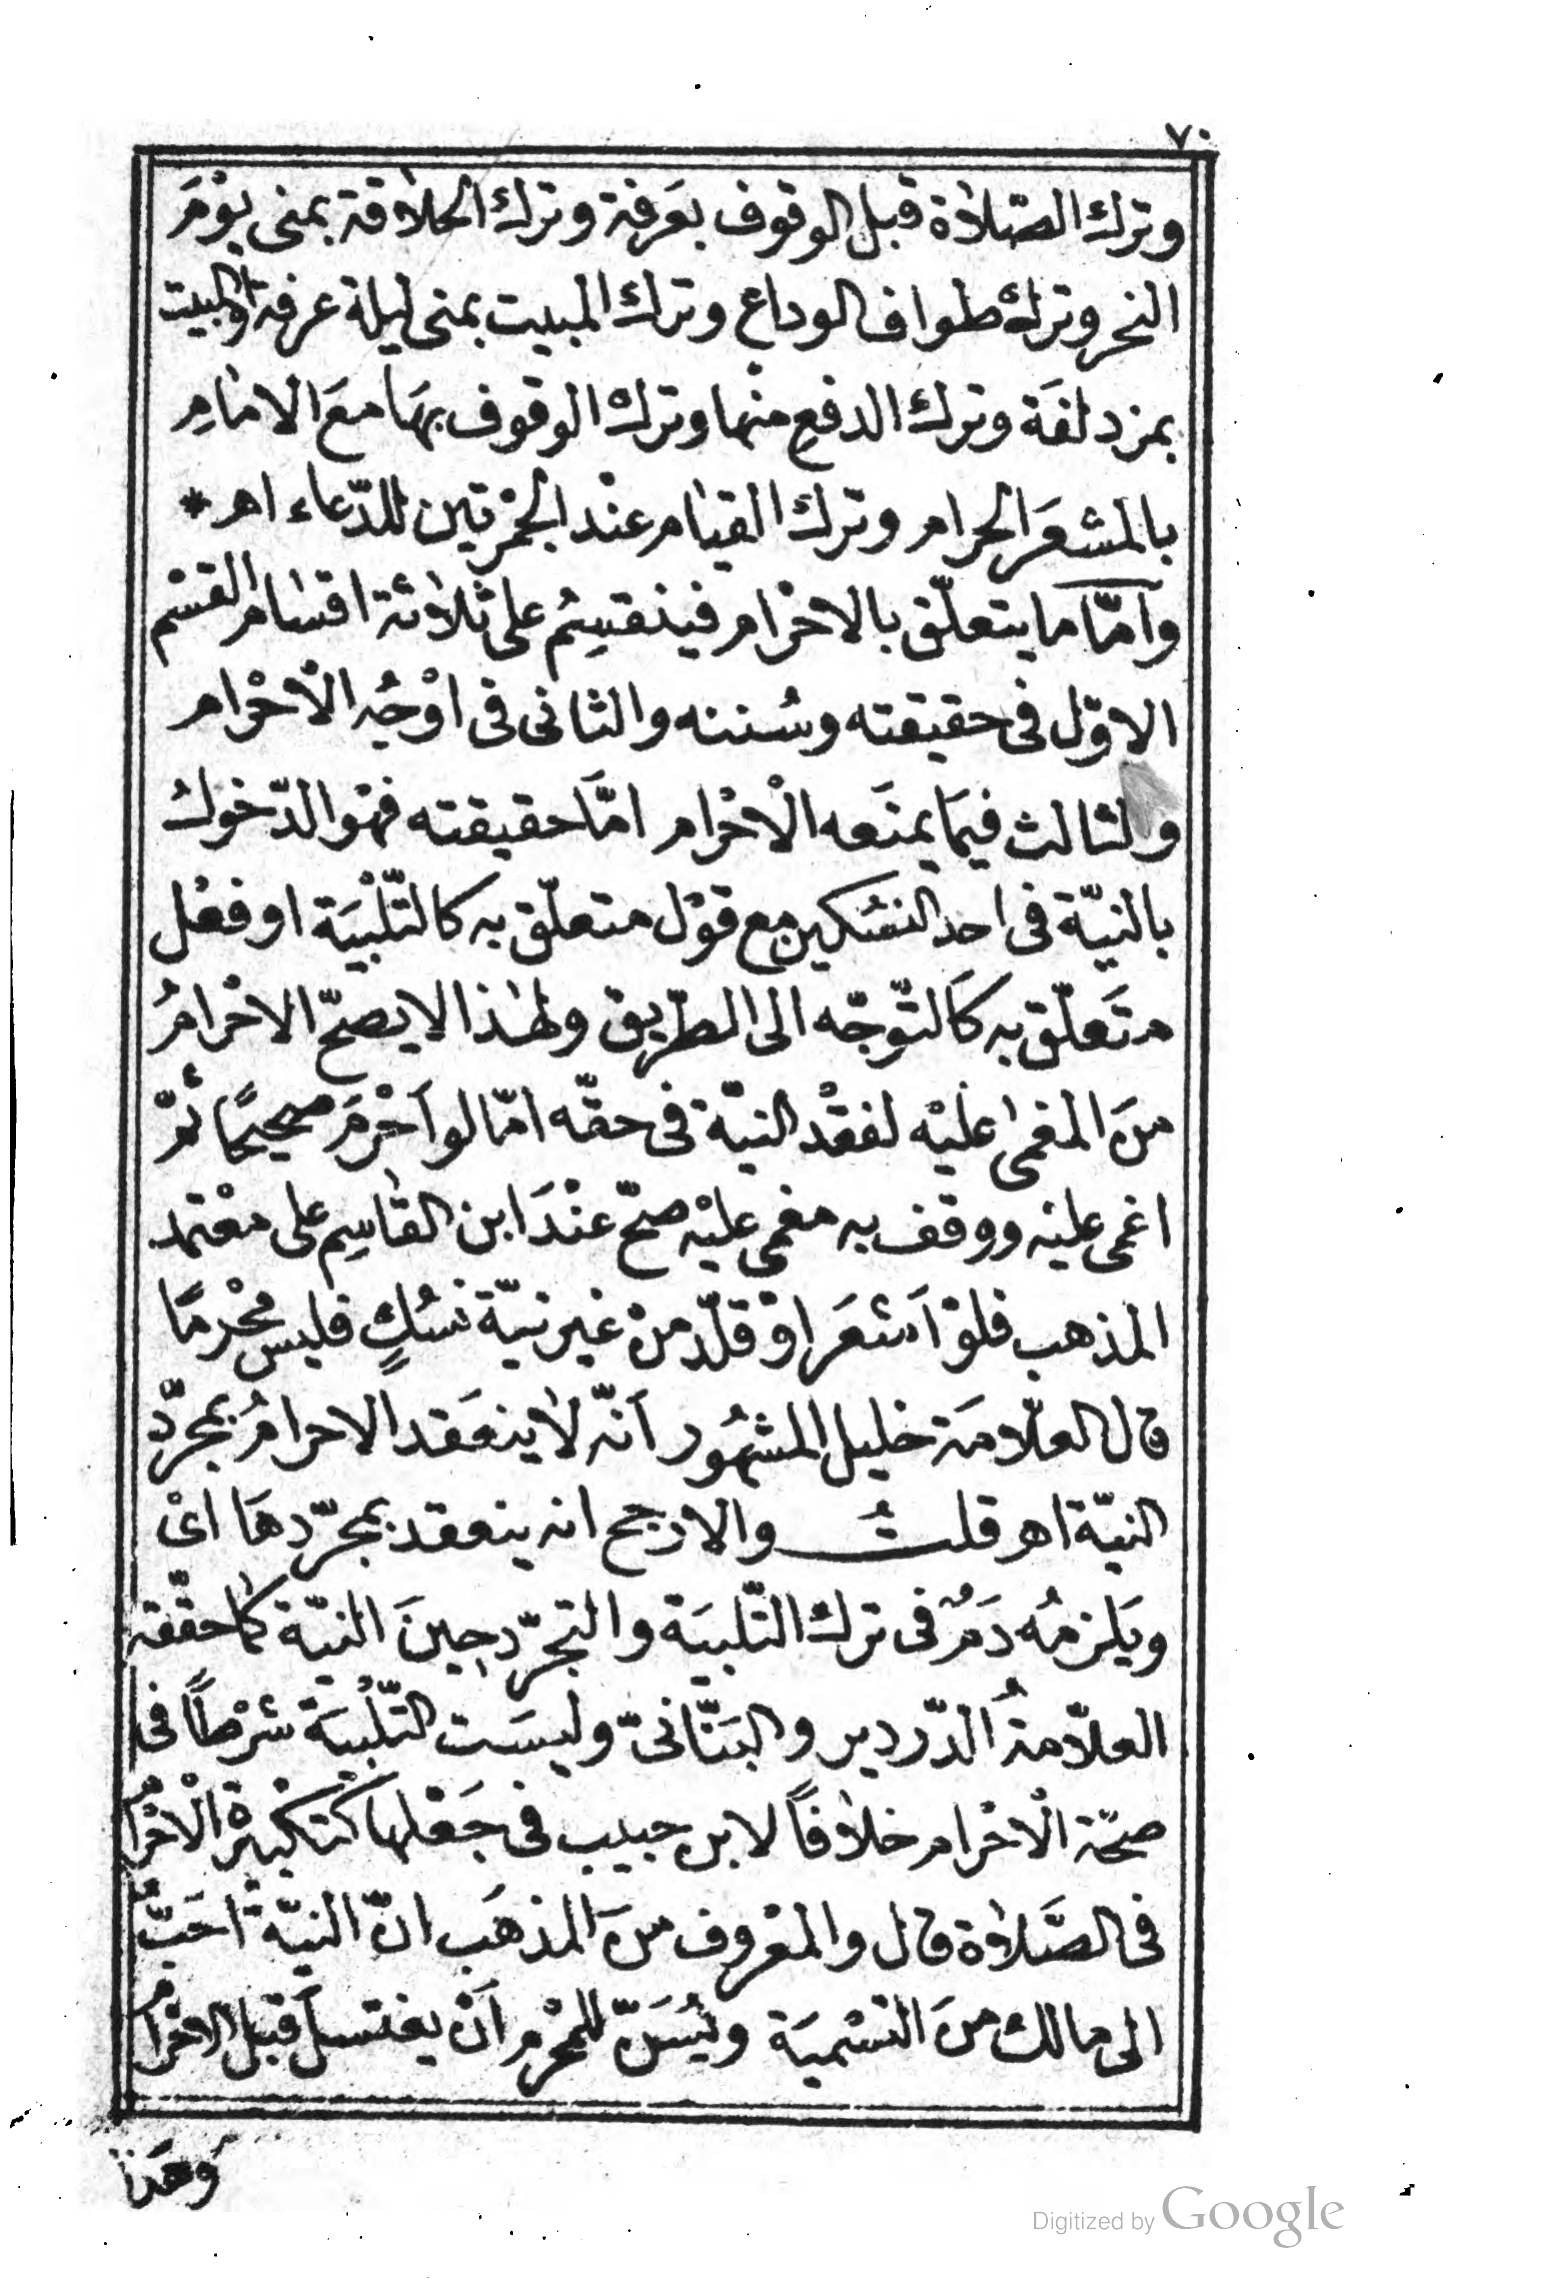 ٧٠
وترك الصّلاة قبل الوقوف بعَرفة وترك الحلاقة بمنى يوْمَ
النحر وترك طواف الوداع وترك المبيت بمنى ليلة عرفة أو المبيت
بمزدلفَة وترك الدفع منها وترك الوقوف بهَا معَ الامامِ
بالمشعَر الحرام وترك القيام عنْد الجمْرتين للدّعاء اهـ *
وأمّا ما يتعلّق بالاحْرام فينقسِمُ على ثلاثة اقسام القسْم
الاوّل فى حقيقته وسُننه والثانى فى اوْجُه الْاحْرام
والثالث فيمَا يمنَعه الْاحْرام امّا حقيقته فهْو الدّخول
بالنيّة فى احد النسُكين مع قوْل متعلّق به كالتّلْبيَة او فعْل
متَعلّق به كَالتّوجّه الى الطّريق ولهٰذا لا يصحّ الاحْرامُ
منَ المغمى عليْه لفقْد النيّة فى حقّه امّا لو اَحْرمَ صحيحًا ثمّ
اغمى عليْه ووقف به مغمى عليْه صحّ عنْدَ ابن القاسِم على معْتمد
المذهب فلوْ اَشعَر اوْ قلّد منْ غير نيّة نسُكٍ فليس محْرمًا
قال العلّامَة خليل المشهُور اَنّه لا ينعَقد الاحرامُ بمجرّد
النيّة اهـ قلتُ والارجح انه ينعقد بمجرّدهَا اىْ
ويَلزمُه دَمٌ فى ترك التّلبيَة والتجرّد حِينَ النيّة كما حقّقه
العلّامةُ الدّردير والبَنّانىّ وليسَت التّلْبيَة شرْطاً فى
صحّة الْاحْرام خلافاً لابن حبيب فى جَعْلها كتكْبيرة الْاحْرام
فى الصَّلاة قال والمعْروف منَ المذهَب انّ النيّة احَبُّ
الى مالك منَ التسْميَة ويُسَنّ للمحْرم اَنْ يغتسل قبل الاحْرام
وهَذا
Digitized by Google